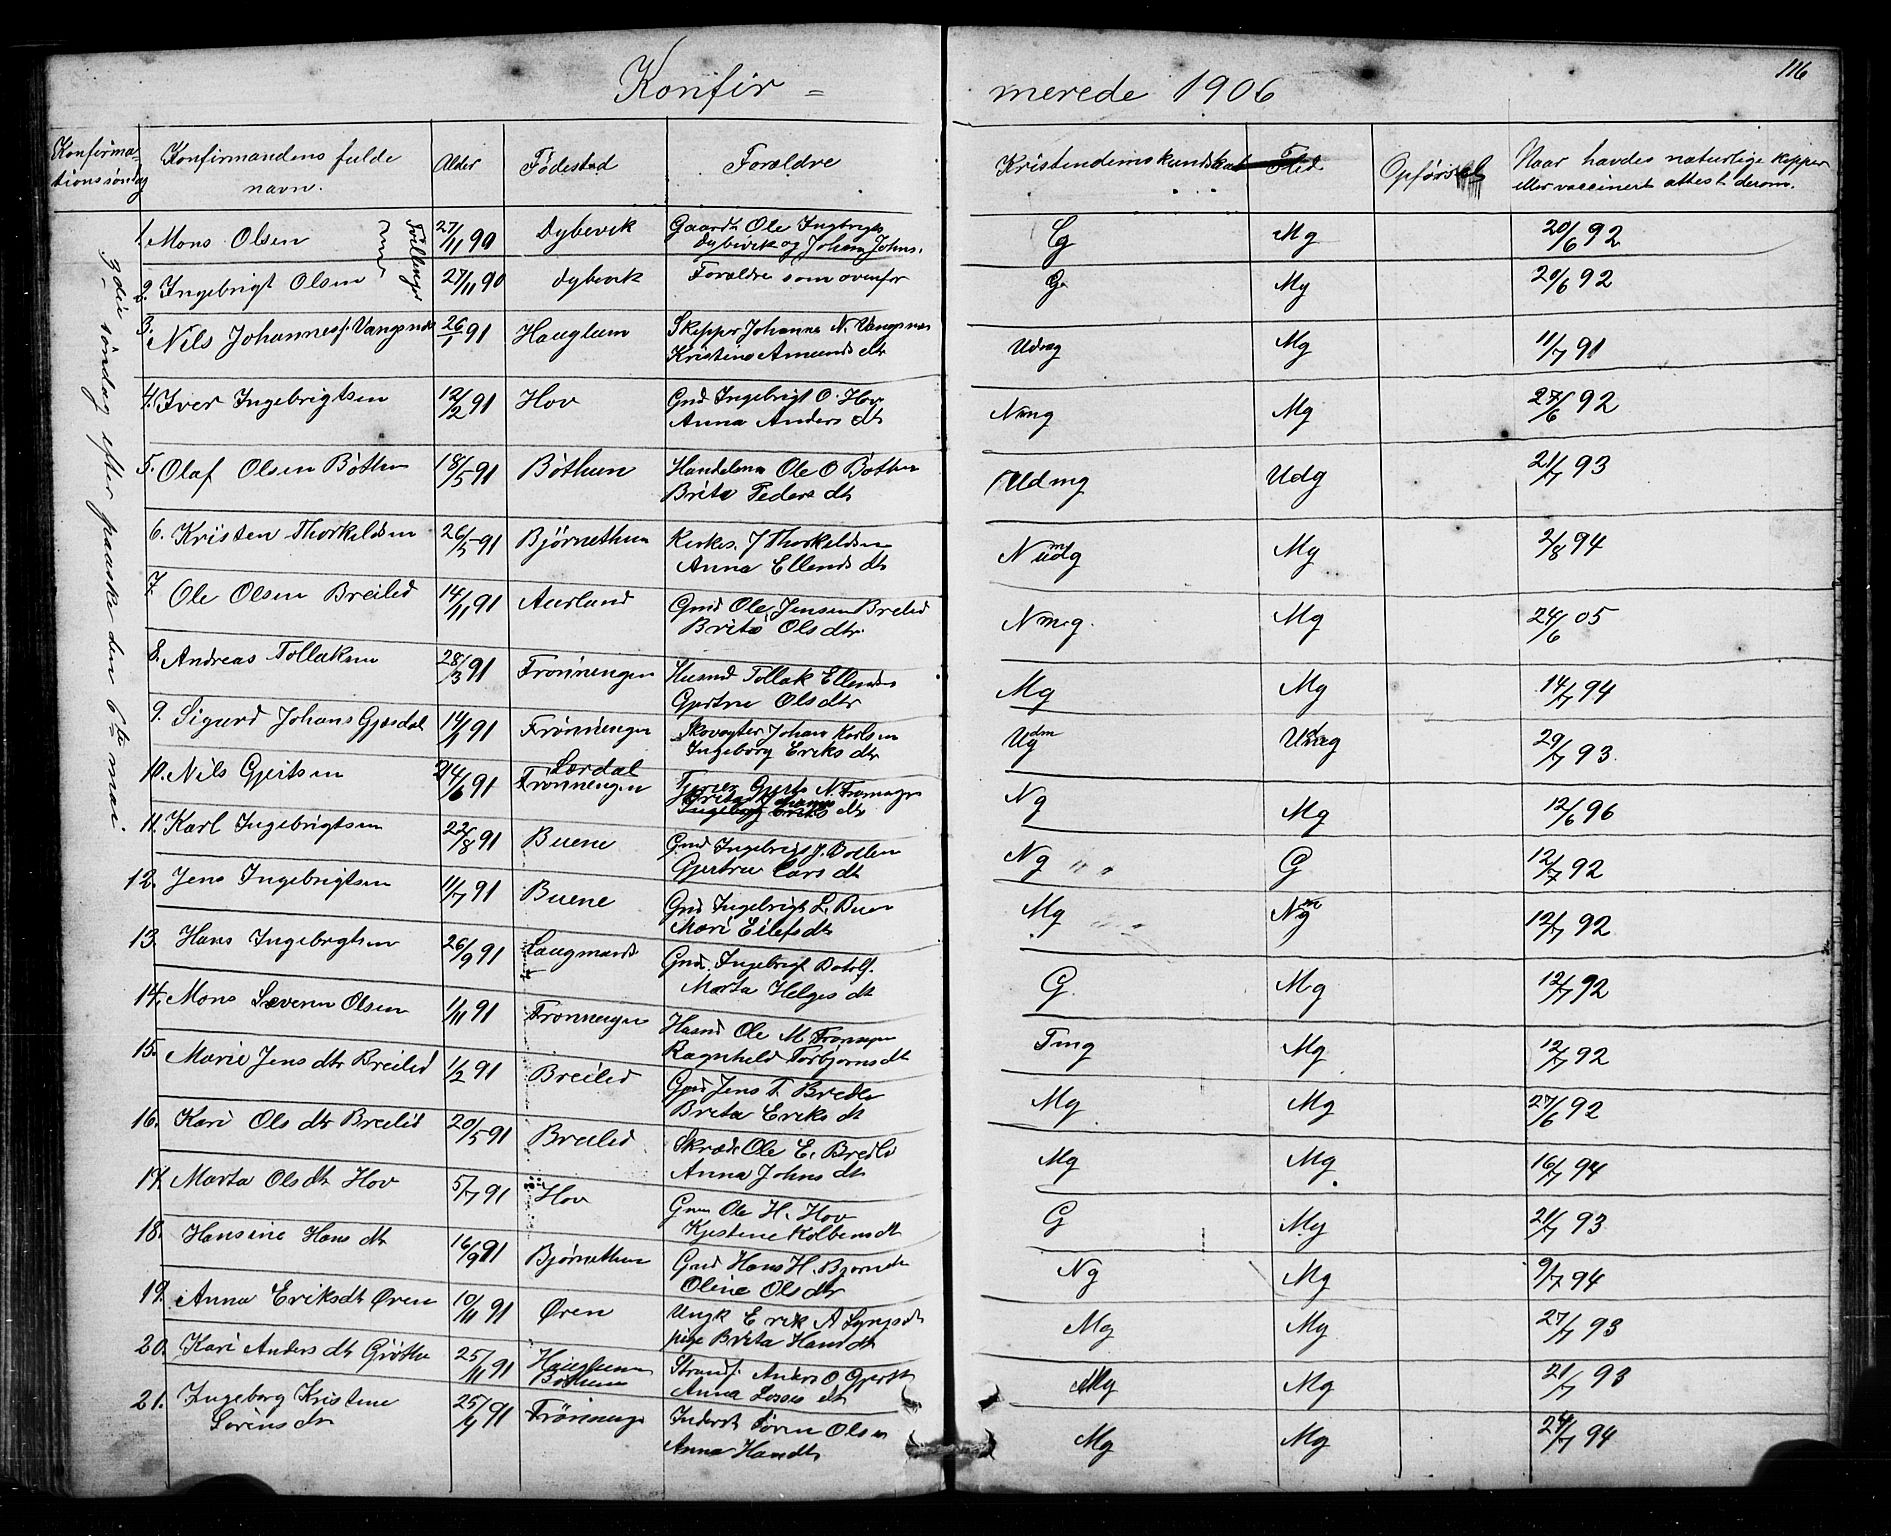 116
Konfir = merede 1906
Konfirma- tionssøndag
Konfirmandens fulde navn.
Alder
Fødested
Forældre
Kristendomskundskab
Flid
Opførsel
Naar havdes naturlige kopper eller vaccinert attest derom.
3die søndag efter paaske den 6te mai.
Tvillinger
1. Mons Olsen 27/11 90 Dybevik Gaardb. Ole Ingebrigts Dybevik og Johana Johns. Mg 20/6 92
2. Ingebrigt Olsen 27/11 90 Dybevik Forældre som ovenfor G. Mg 20/6 92
3. Nils Johannesf. Vangsnes 26/1 91 Hauglum Skipper Johannes N. Vangsnes Kristine Amunds dtr Mg 11/7 91
4. Iver Ingebrigtsen 12/2 91 Hov Gmd Ingebrigt O. Hov Anna Anders dt Nmg Mg 27/6 92
5. Olaf Olsen Bøthun 18/5 91 Bøthun Ole O Bøthun Brita Peders dt Udmg Udg 21/7 93
6. Kristen Thorkildsen 26/5 91 Bjørnethun Kirkes. J Thorkildsen Anna Ellends dt Mg 2/8 94
7. Ole Olsen Breilid 14/11 91 Aurland Gmd Ole Jensen Breilid Brita Olsdtr. Nmg. Mg 24/6 05
8. Andreas Tollaksen 28/3 91 Frønningen Husmd Tollak Ellends Gjertrue Olsdtr Mg Mg 14/7 94
9. Sigurd Johans Gjesdal 14/1 91 Frønningen Skovogter Johan Karlsen Ingeborg Eriks dt 29/7 93.
10. Nils Gjertsen 24/6 91 Lærdal Frønningen Gjerts N. Ingeborg Eriks dt Ng Mg 12/6 96
11. Karl Ingebrigtsen 22/8 91 Buene Gmd Ingebrigt J. Gjertrue Lars dt Ng G 12/7 92
12. Jens Ingebrigtsen 11/7 91 Buene Gmd Ingebrigt L. Buen Mari Eilefsdt Mg 12/7 92
13. Hans Ingebrigtsen 26/9 91 Gmd. Ingebrigt Botolf. Marta Helges dt G. Mg 12/7 92
14. Mons Severin Olsen 1/11 91 Frønningen Husmd Ole M. Ragnhild Torbjørnsdt Tmg Mg 12/7 92
15. Marie Jens dtr Breilid 1/2 91 Breilid Gmd Jens T. Breilid Brita Eriks dt Mg Mg 27/6 92
16. Kari Ols dtr Breilid 20/5 91 Breilid Ole E. Anna Johns dt Mg Mg 16/7 94
17. Marta Olsdt Hov 5/7 91 Hov Ole H. Hov Kjestene Kolbensdt G Mg 21/7 93
18. Hansine Hans dtr 16/9 91 Bjørnethun Gmd Hans H. Oline Olsdtr Ng Mg 9/7 94
19. Anna Eriksdt Øren 10/11 91 Øren Ungk Erik A pige Brita Hansdt Mg Mg 27/7 93
20. Kari Anders dt 25/11 91 Hauglum Bøthun Strands. Anders O Anna Lasses dt Mg Mg 21/7 93
21. Ingeborg Kristine Sørensdtr 25/9 91 Frønninge Inderst Søren Olsen Anna Hansdt Mg Mg 24/7 94